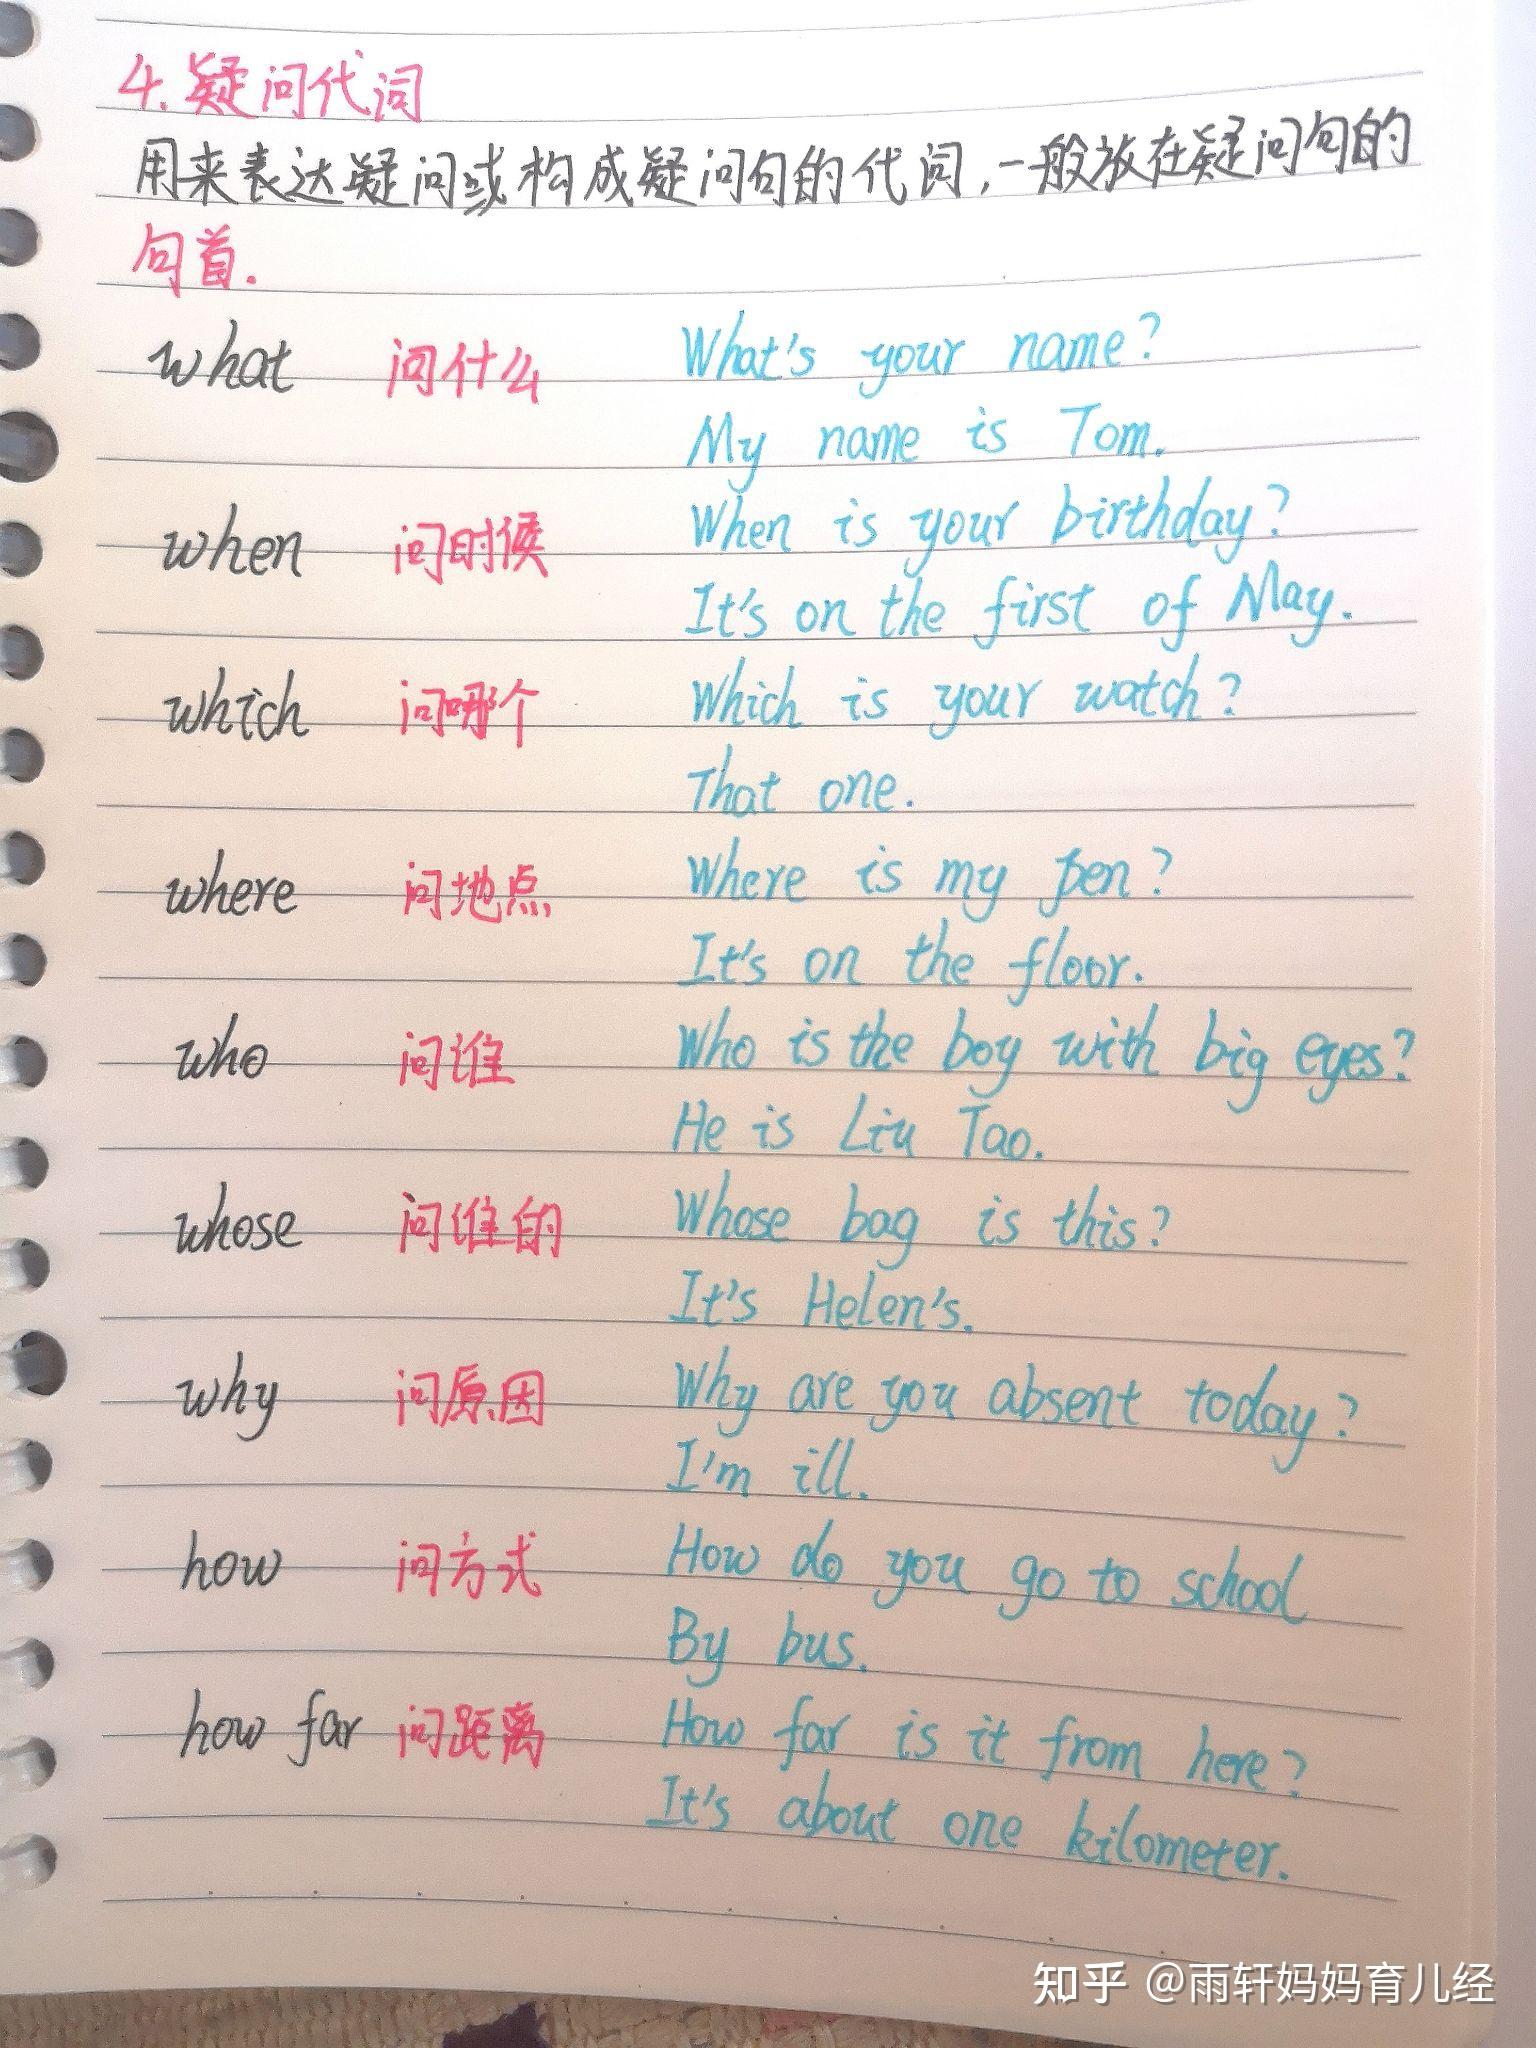 4.疑问代词
用来表达疑问或构成疑问句的代词,一般放在疑问句的
句首.
what 问什么 What's your name?
My name is Tom.
when 问时候 When is your birthday?
It's on the first of May.
which 问哪个 Which is your watch?
That one.
where 问地点 Where is my pen?
It's on the floor.
who 问谁 Who is the boy with big eyes?
He is Liu Tao.
whose 问谁的 Whose bag is this?
It's Helen's.
why 问原因 Why are you absent today?
I'm ill.
how 问方式 How do you go to school
By bus.
how far 问距离 How far is it from here?
It's about one kilometer.
知乎 @雨轩妈妈育儿经